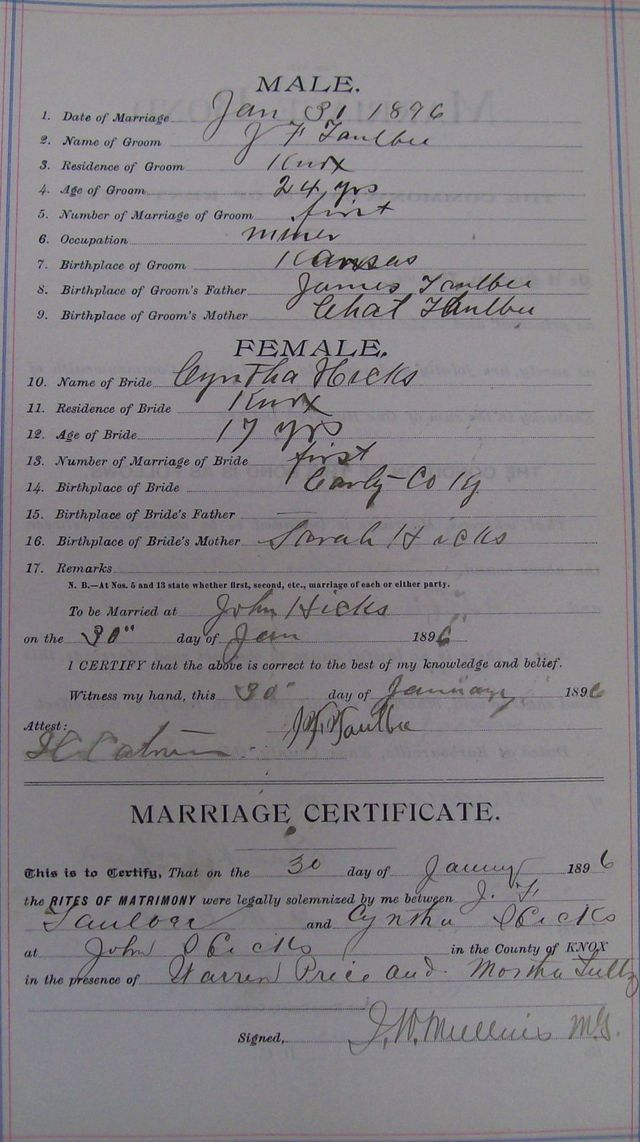 MALE.
1. Date of Marriage Jan 31 1896
2. Name of Groom J F Taulbee
3. Residence of Groom Knox
4. Age of Groom 24 yrs
5. Number of Marriage of Groom first
6. Occupation miner
7. Birthplace of Groom Kansas
8. Birthplace of Groom's Father James Taulbee
9. Birthplace of Groom's Mother Chat Taulbee
FEMALE.
10. Name of Bride Cyntha Hicks
11. Residence of Bride Knox
12. Age of Bride 17 yrs
13. Number of Marriage of Bride first
14. Birthplace of Bride Co Ky
15. Birthplace of Bride's Father
16. Birthplace of Bride's Mother Sarah Hicks
17. Remarks
N. B.—At Nos. 5 and 13 state whether first, second, etc., marriage of each or either party.
To be Married at John Hicks
on the 30" day of Jan 1896
I CERTIFY that the above is correct to the best of my knowledge and belief.
Witness my hand, this 30" day of January 1896
Attest: J F Taulbee
MARRIAGE CERTIFICATE.
This is to Certify, That on the 30 day of January 1896
the RITES OF MATRIMONY were legally solemnized by me between J. F.
Taulbee and Cyntha Hicks
at John Hicks in the County of KNOX
in the presence of Warren Price and Martha
Signed, J. W. Mullins M.G.